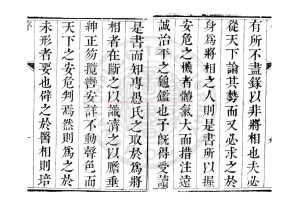 有所不盡錄以非將相也夫必
從天下論其勢而又必求之於
身爲將相之人則是書所以握
安危之機者體氣大而措注遠
誠治平之龜鑑也予旣得受讀
是書而知專愚氏之取於爲將
相者在斷之以識濟之以膽垂
紳正笏攬轡安詳不動聲色而
天下之安危判焉然則爲之於
未形者要也僻之於醫相則培